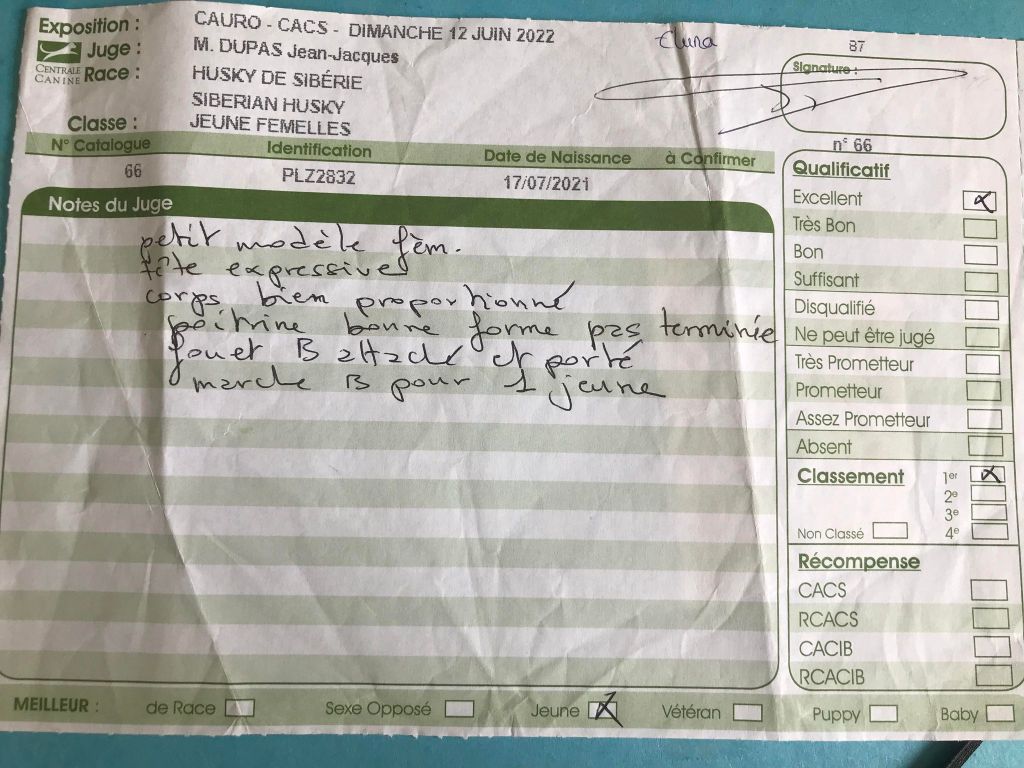 Exposition : CAURO - CACS - DIMANCHE 12 JUIN 2022
Juge : M. DUPAS Jean-Jacques
CENTRALE CANINE
Race : HUSKY DE SIBÉRIE
SIBERIAN HUSKY
Classe : JEUNE FEMELLES
87
Signature :
N° Catalogue Identification Date de Naissance à Confirmer
66 PLZ2832 17/07/2021
Notes du Juge
petit modèle fém.
tête expressive
corps bien proportionné
poitrine bonne forme pas terminée
fouet B attaché et porté
marche B pour 1 jeune
n° 66
Qualificatif
Excellent X
Très Bon
Bon
Suffisant
Disqualifié
Ne peut être jugé
Très Prometteur
Prometteur
Assez Prometteur
Absent
Classement 1er X
2e
3e
Non Classé 4e
Récompense
CACS
RCACS
CACIB
RCACIB
MEILLEUR : de Race Sexe Opposé Jeune X Vétéran Puppy Baby